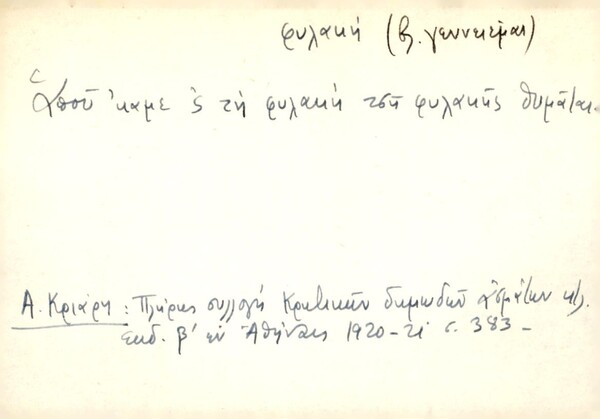 φυλακή (βλ. γεννειέμαι)
Ὁποῦ 'καμε 'ς τὴ φυλακὴ τσῆ φυλακῆς θυμᾶται.
Α. Κριάρη: Πλήρης συλλογή Κρητικῶν δημωδῶν ᾀσμάτων κτλ.
ἐκδ. β' ἐν Ἀθήναις 1920-21 σ. 383-